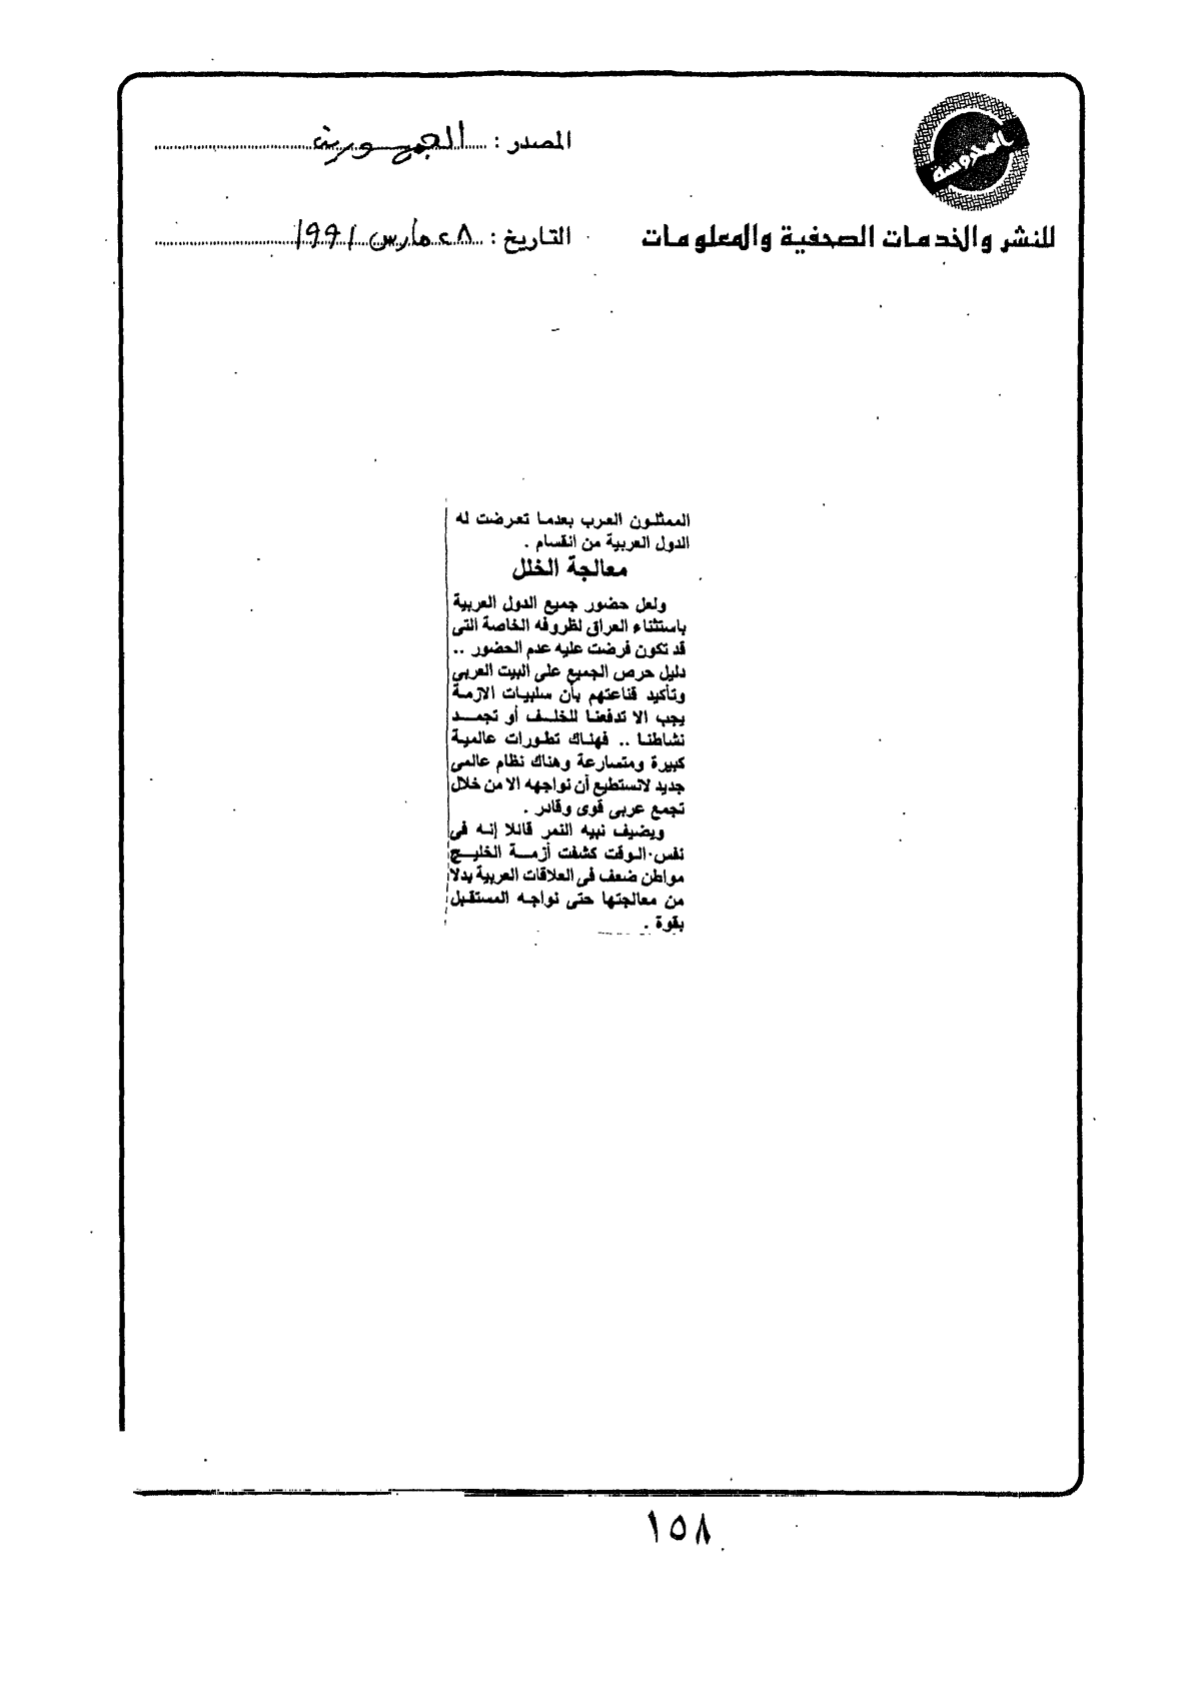 المدروسة
المصدر : الجمهورية
للنشر والخدمات الصحفية والمعلومات
التاريخ : ٢٨ مارس ١٩٩١
الممثلون العرب بعدما تعرضت له
الدول العربية من انقسام .
معالجة الخلل
ولعل حضور جميع الدول العربية
باستثناء العراق لظروفه الخاصة التى
قد تكون فرضت عليه عدم الحضور ..
دليل حرص الجميع على البيت العربى
وتأكيد قناعتهم بأن سلبيات الازمة
يجب الا تدفعنا للخلف أو تجمد
نشاطنا .. فهناك تطورات عالمية
كبيرة ومتسارعة وهناك نظام عالمى
جديد لانستطيع أن نواجهه الا من خلال
تجمع عربى قوى وقادر .
ويضيف نبيه النمر قائلا إنه فى
نفس الوقت كشفت أزمة الخليج
مواطن ضعف فى العلاقات العربية بدلا
من معالجتها حتى نواجه المستقبل
بقوة .
١٥٨